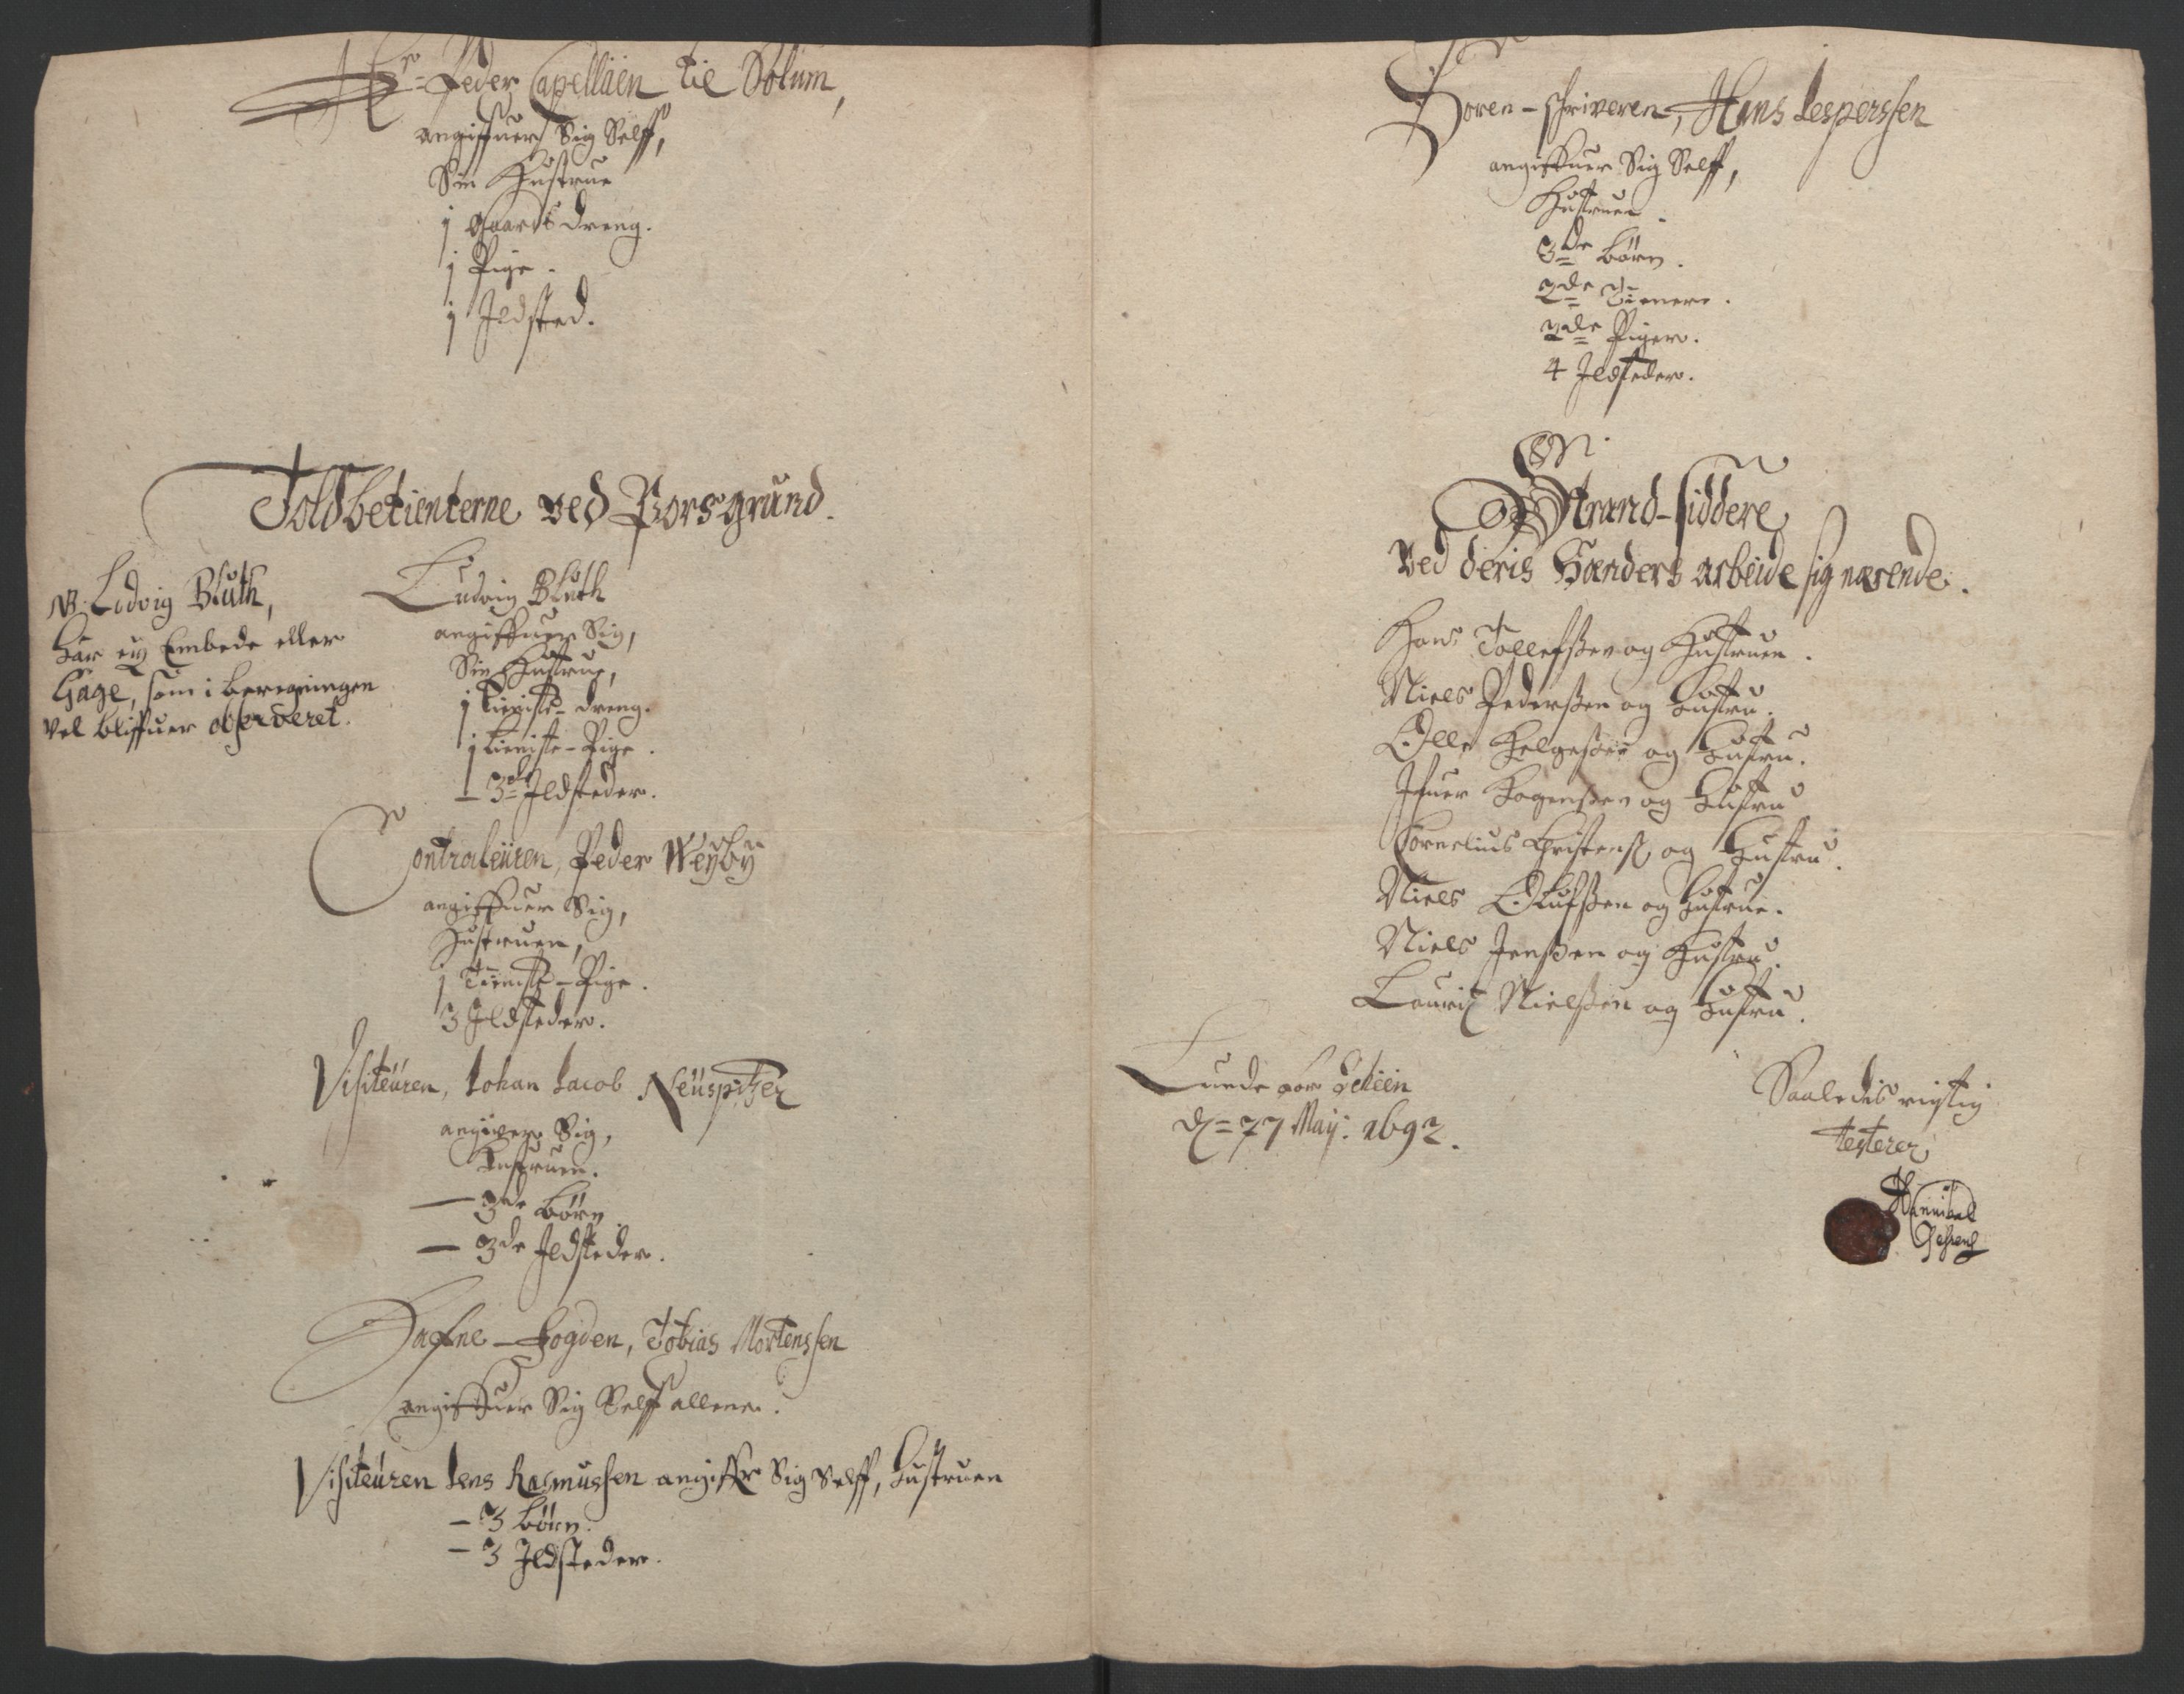 Hr. Peder Capellaen til Solum,
angiffuer Sig Selff,
Sin Hustrue
1 Gaards dreng.
1 Pige.
1 Jldsted.
Toldbetienterne ved Porsgrund.
NB. Ludvig Bluth,
har ey Embede eller
Gage, som i beregningen
vel bliffuer observeret.
Ludvig Bluth
angiffuer Sig,
Sin Hustrue,
1 tieniste-dreng.
1 tieniste-Pige.
- 3de Jldsteder.
Contraleuren, Peder Weyby
angiffuer Sig,
Hustruen,
1 Tieniste-Pige.
3 Jldsteder.
Visiteuren, Johan Jacob Neuspitzer
angiver Sig,
Hustruen.
- 3de børn
- 3de Jldsteder.
Hafne-fogden, Tobias Mortenssen
angiffuer Sig Selff allene.
Visiteuren Jens Rasmussen angiffr Sig Selff, Hustruen
- 3 børn.
- 3 Jldsteder.
Soren-schriveren, Hans Jesperssen
angiffuer Sig Selff,
Hustruen.
3de børn.
2de Tienere.
2de Piger.
4 Jldsteder.
Strand-siddere
ved deris Hænders arbeide sig nærende.
Hans Tollefssen og Hustruen.
Niels Pederssen og Hustru.
Olle Helgessen og Hustru.
Jffuer Hogenssen og Hustru
Cornelius Christens og Hustru.
Niels Olufssen og Hustrue.
Niels Jenssen og Hustru.
Lauritz Nielssen og Hustru.
Lunde for Scheen
d = 27 Maij: 1692.
Saaledis rigtig
testerer
Hannibal